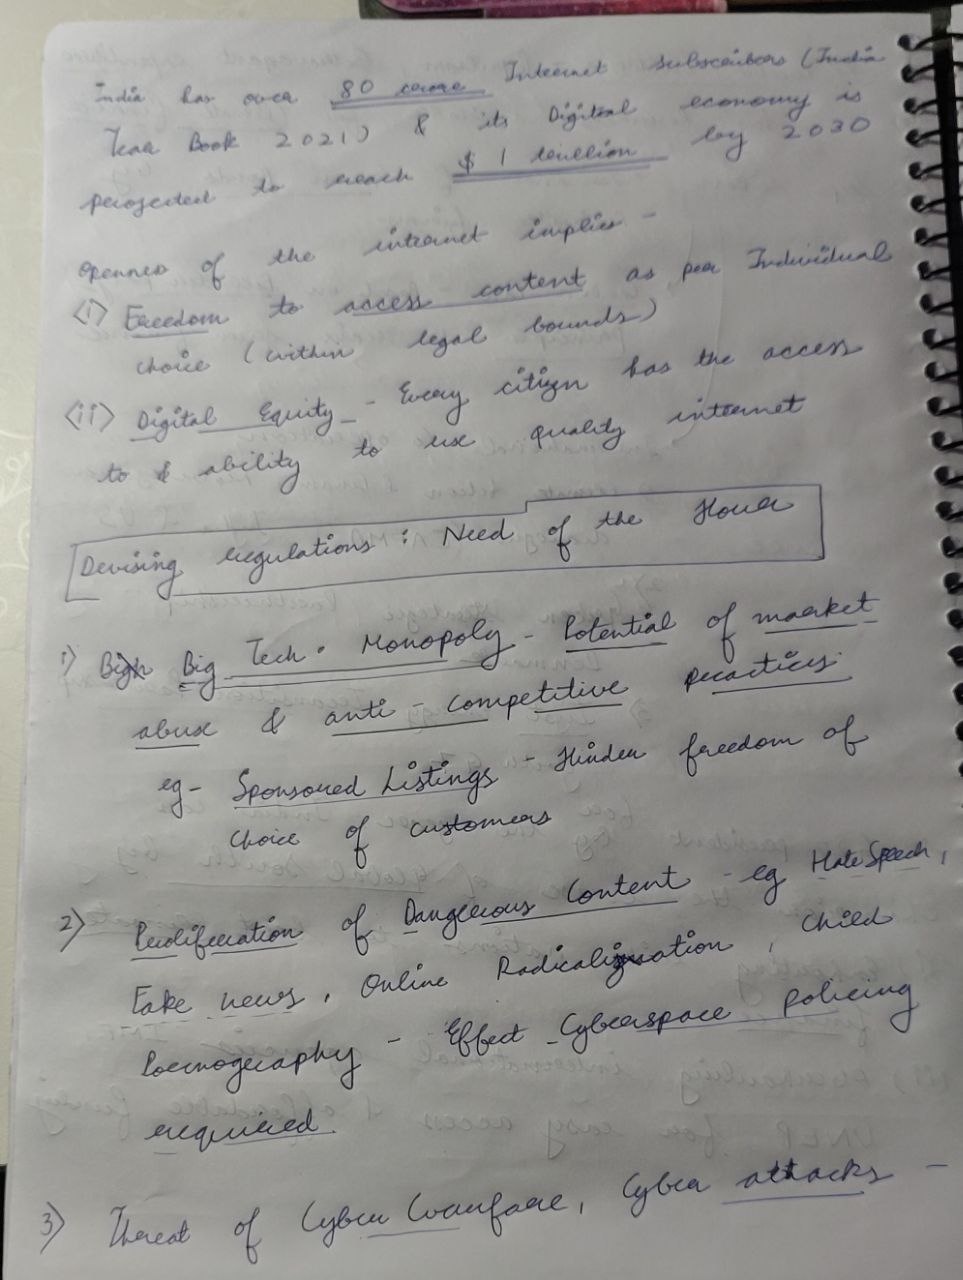 India has over 80 crore Internet subscribers (India
Year Book 2021) & its Digital economy is
projected to reach $ 1 trillion by 2030
openness of the internet implies -
<i> Freedom to access content as per Individual
choice (within legal bounds)
<ii> Digital Equity - Every citizen has the access
to & ability to use quality internet
Devising regulations : Need of the Hour
1) Big Tech. Monopoly - Potential of market
abuse & anti - competitive practices
eg - Sponsored Listings - Hinder freedom of
choice of customers
2) Proliferation of Dangerous Content - eg Hate Speech,
Fake news, Online Radicalization, Child
Pornography - Effect Cyberspace policing
required.
3) Threat of Cyber Warfare, Cyber attacks -